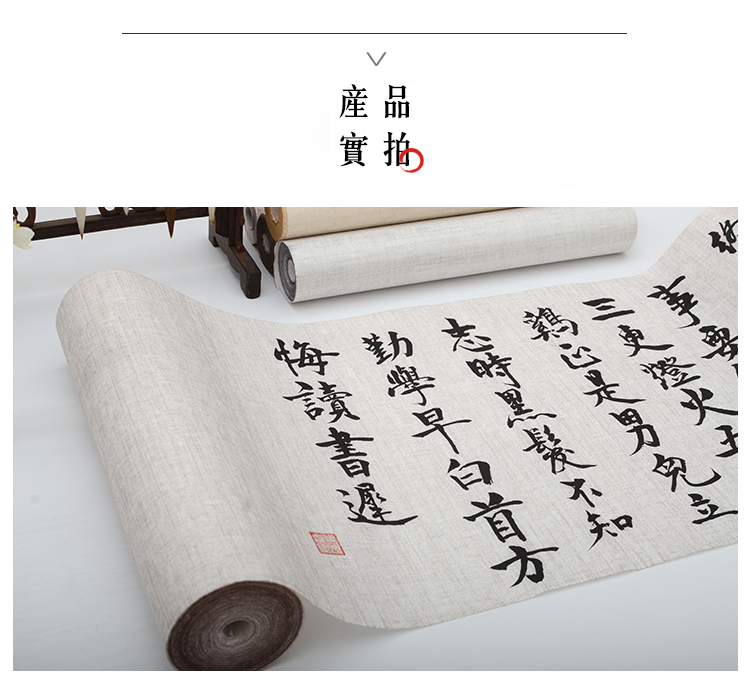 産品
實拍
事要
三更燈火五
鷄正是男兒立
志時黑髮不知
勤學早白首方
悔讀書遲